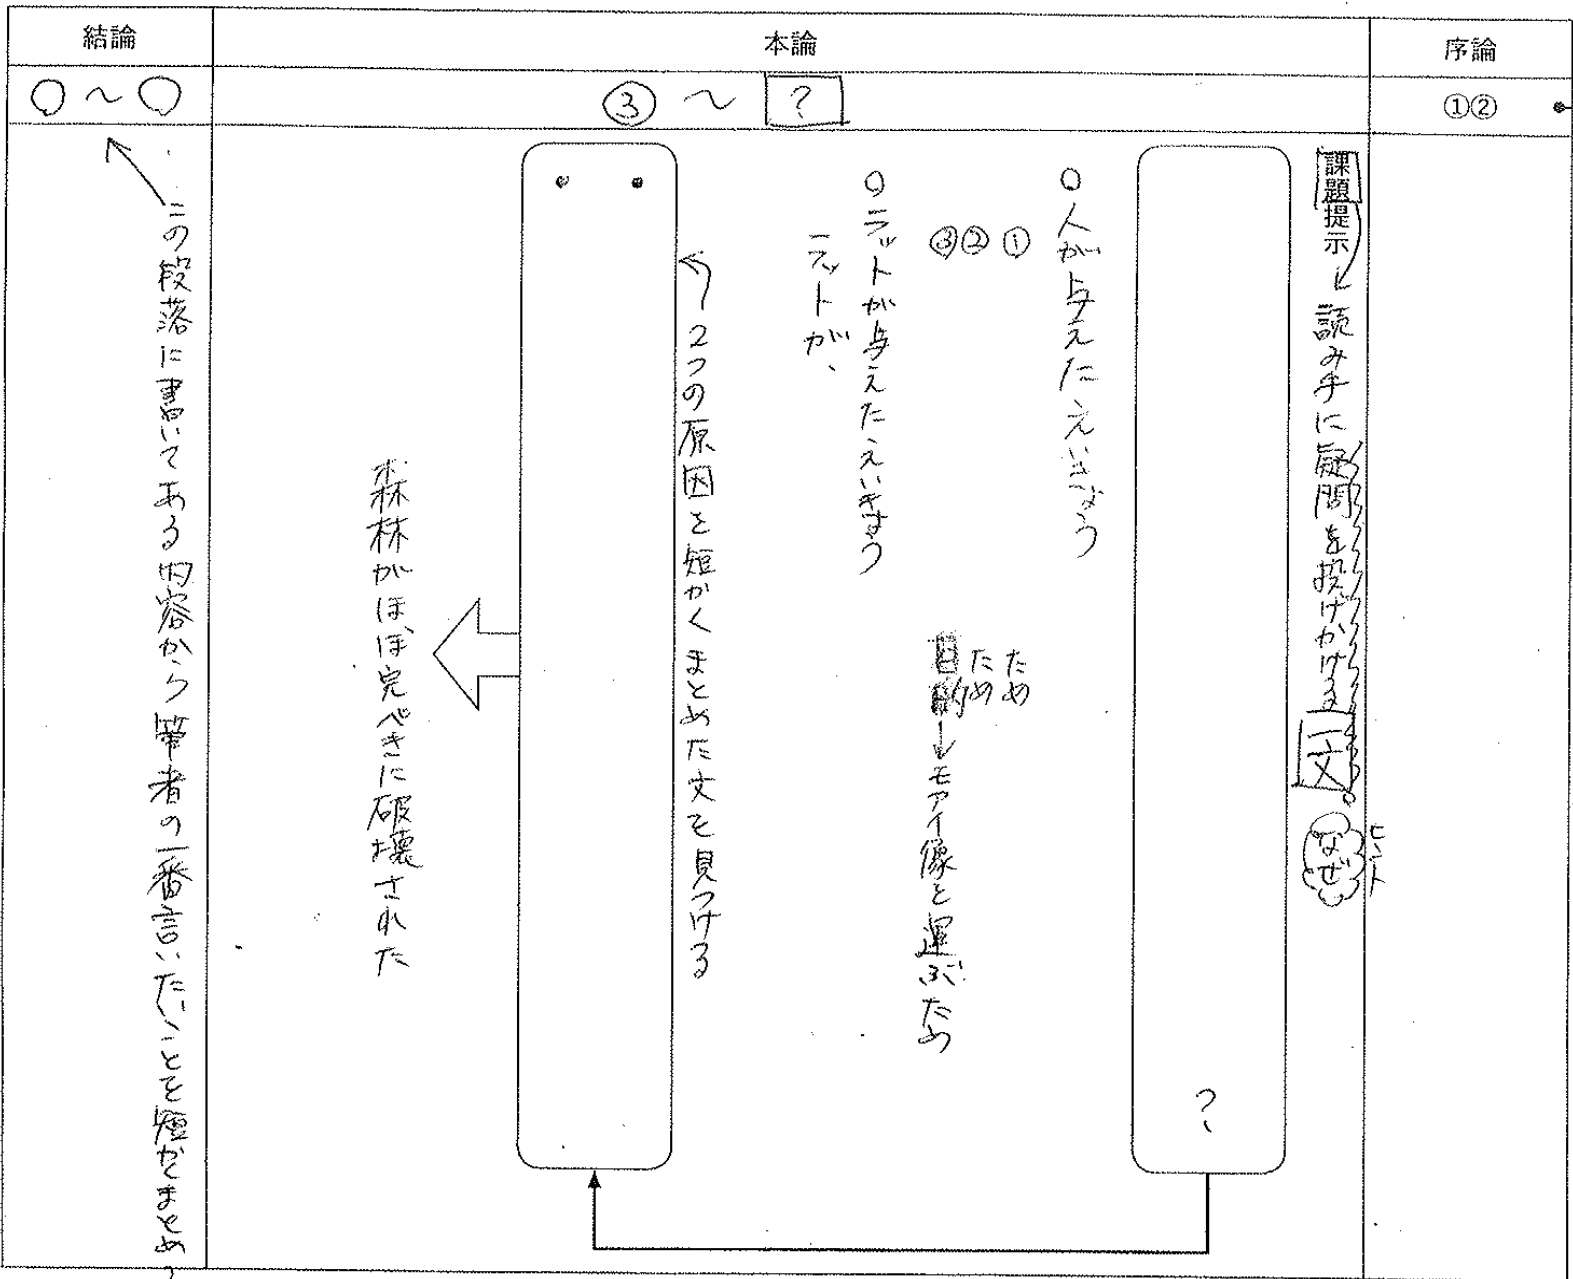 序論
①②
本論
③～?
結論
○～○
課題提示
読み手に疑問を投げかける一文。
ヒント
なぜ
?
○人が与えたえいきょう
①　ため
②　ため
③　目的→モアイ像を運ぶため
○ラットが与えたえいきょう
ラットが、
2つの原因を短かくまとめた文を見つける
森林がほぼ完ぺきに破壊された
この段落に書いてある内容から筆者の一番言いたいことを短かくまとめ